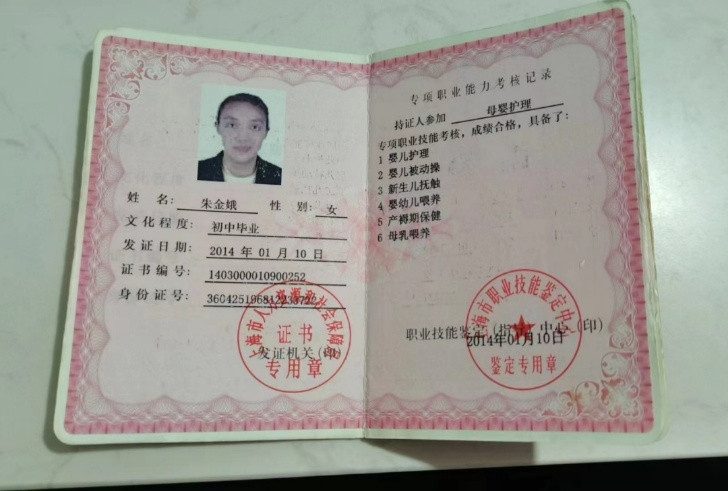 姓 名: 朱金娥 性 别: 女
文化程度: 初中毕业
发证日期: 2014 年 01 月 10 日
证书编号: 1403000010900252
身份证号:
上海市人力资源和社会保障局
证书
发证机关(印)
专用章
专项职业能力考核记录
持证人参加 母婴护理
专项职业技能考核,成绩合格,具备了:
1 婴儿护理
2 婴儿被动操
3 新生儿抚触
4 婴幼儿喂养
5 产褥期保健
6 母乳喂养
海市职业技能鉴定中
职业技能鉴定(指 中心(印)
2014年01月10日
鉴定专用章